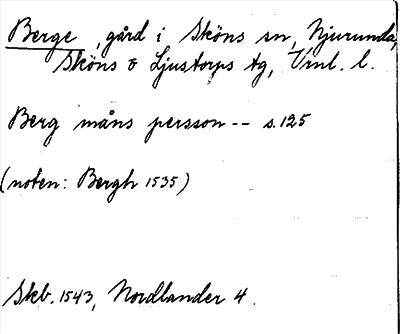 Berge, gård i Sköns sn, Njurunda,
Sköns o Ljustorps tg, Vrnl. l.
Berg måns persson -- s. 125
(noten: Bergh 1535)
Skb. 1543, Nordlander 4.